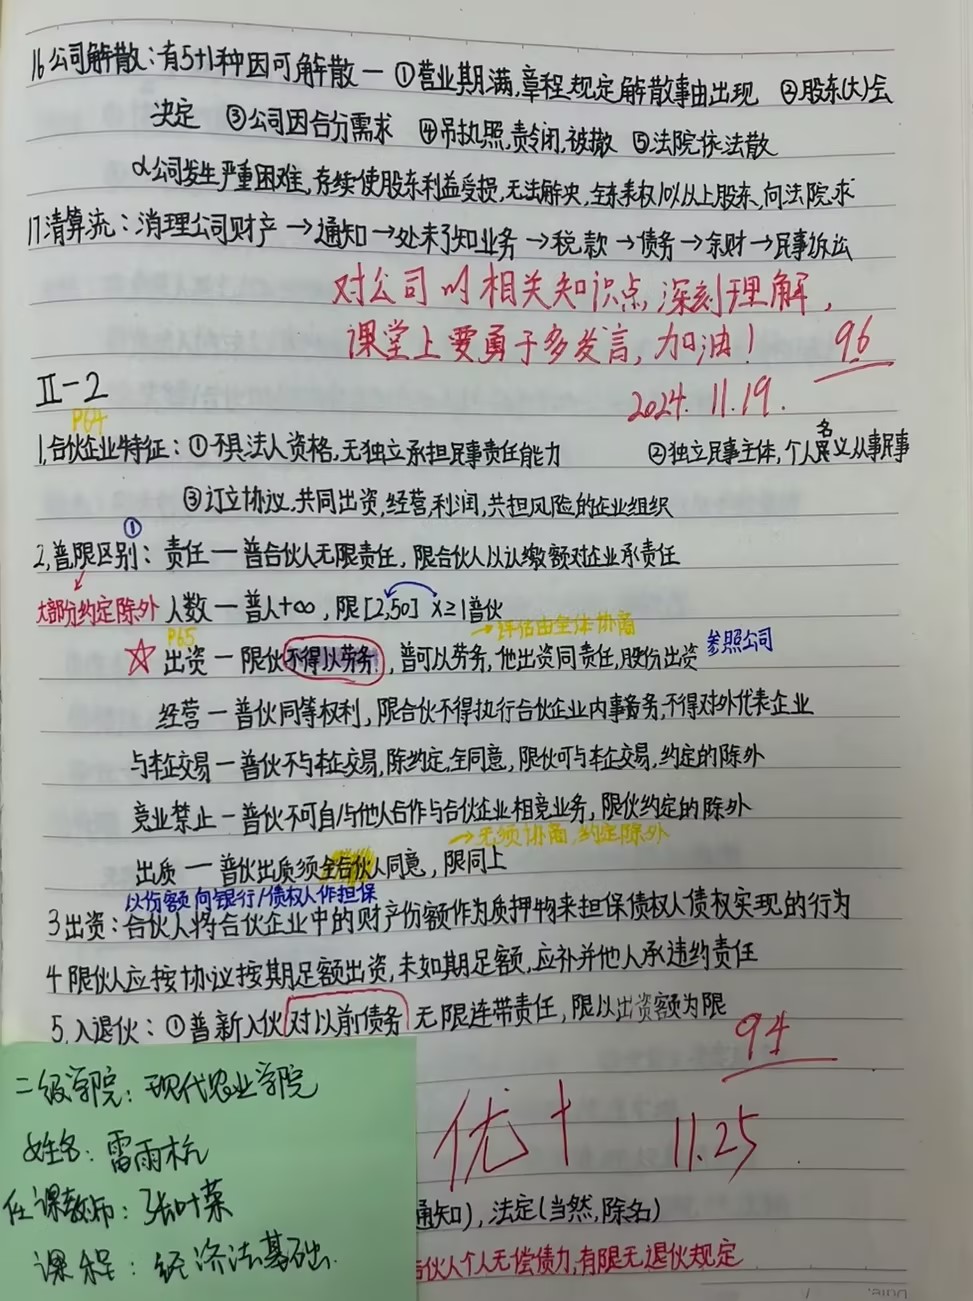 16公司解散:有5+1种因可解散一 ①营业期满,章程规定解散事由出现 ②股东(大)会
决定 ③公司因合分需求 ④吊执照,责令闭,被撤 ⑤法院依法散
公司发生严重困难,存续使股东利益受损,无法解决,全表权10%以上股东,向法院求
17清算流:清理公司财产→通知→处未了知业务→税款→债务→余财→民事诉讼
对公司的相关知识点,深刻理解,
课堂上要勇于多发言,加油! 96
2024.11.19.
Ⅱ-2
P64
1,合伙企业特征:①不具法人资格,无独立承担民事责任能力 ②独立民事主体,个人名义从事民事
③订立协议.共同出资,经营,利润,共担风险的企业组织
①
2,普,限区别: 责任一普合伙人无限责任, 限合伙人以认缴额对企业承责任
大部分约定除外 人数一普人+∞, 限[2,50] x≥1普伙
P65 →评估由全体协商
☆ 出资一限伙不得以劳务, 普可以劳务,他出资同责任,股份出资 参照公司
经营一普伙同等权利, 限合伙不得执行合伙企业内事务,不得对外代表企业
与本企交易一普伙不与本企交易,除约定,全同意, 限伙可与本企交易,约定的除外
竞业禁止一普伙不可自/与他人合作与合伙企业相竞业务, 限伙约定的除外
→无须协商,约定除外
出质一普伙出质须全合伙人同意, 限同上
以份额向银行/债权人作担保
3出资:合伙人将合伙企业中的财产份额作为质押物来担保债权人债权实现的行为
4限伙人应按协议按期足额出资,未如期足额,应补并他人承违约责任
5.入退伙:①普新入伙对以前债务无限连带责任, 限以出资额为限
94
优+ 11.25
二级学院:现代农业学院
姓名:雷雨杭
任课教师:张叶菜
课程:经济法基础.
通知), 法定(当然,除名)
合伙人个人无偿债力,有限无退伙规定